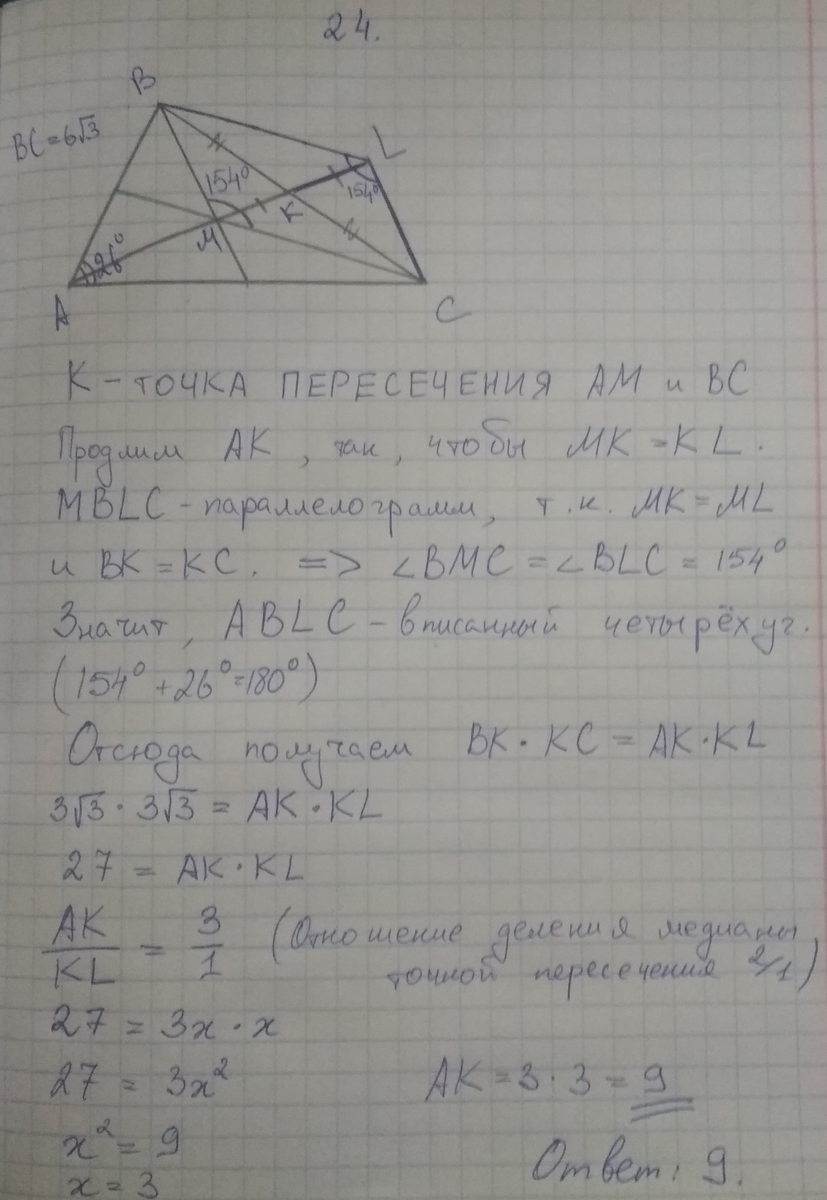 24.
B
BC=6√3
L
154°
154°
K
M
26°
A
C
K - ТОЧКА ПЕРЕСЕЧЕНИЯ AM и BC
Продлим AK, так, чтобы MK = KL.
MBLC - параллелограмм, т.к. MK = ML
и BK = KC. => ∠BMC = ∠BLC = 154°
Значит, ABLC - вписанный четырёхуг.
(154° + 26° = 180°)
Отсюда получаем BK · KC = AK · KL
3√3 · 3√3 = AK · KL
27 = AK · KL
AK/KL = 3/1 (Отношение деления медианы
точкой пересечения 2/1)
27 = 3x · x
27 = 3x² AK = 3 · 3 = 9
x² = 9
x = 3 Ответ: 9.